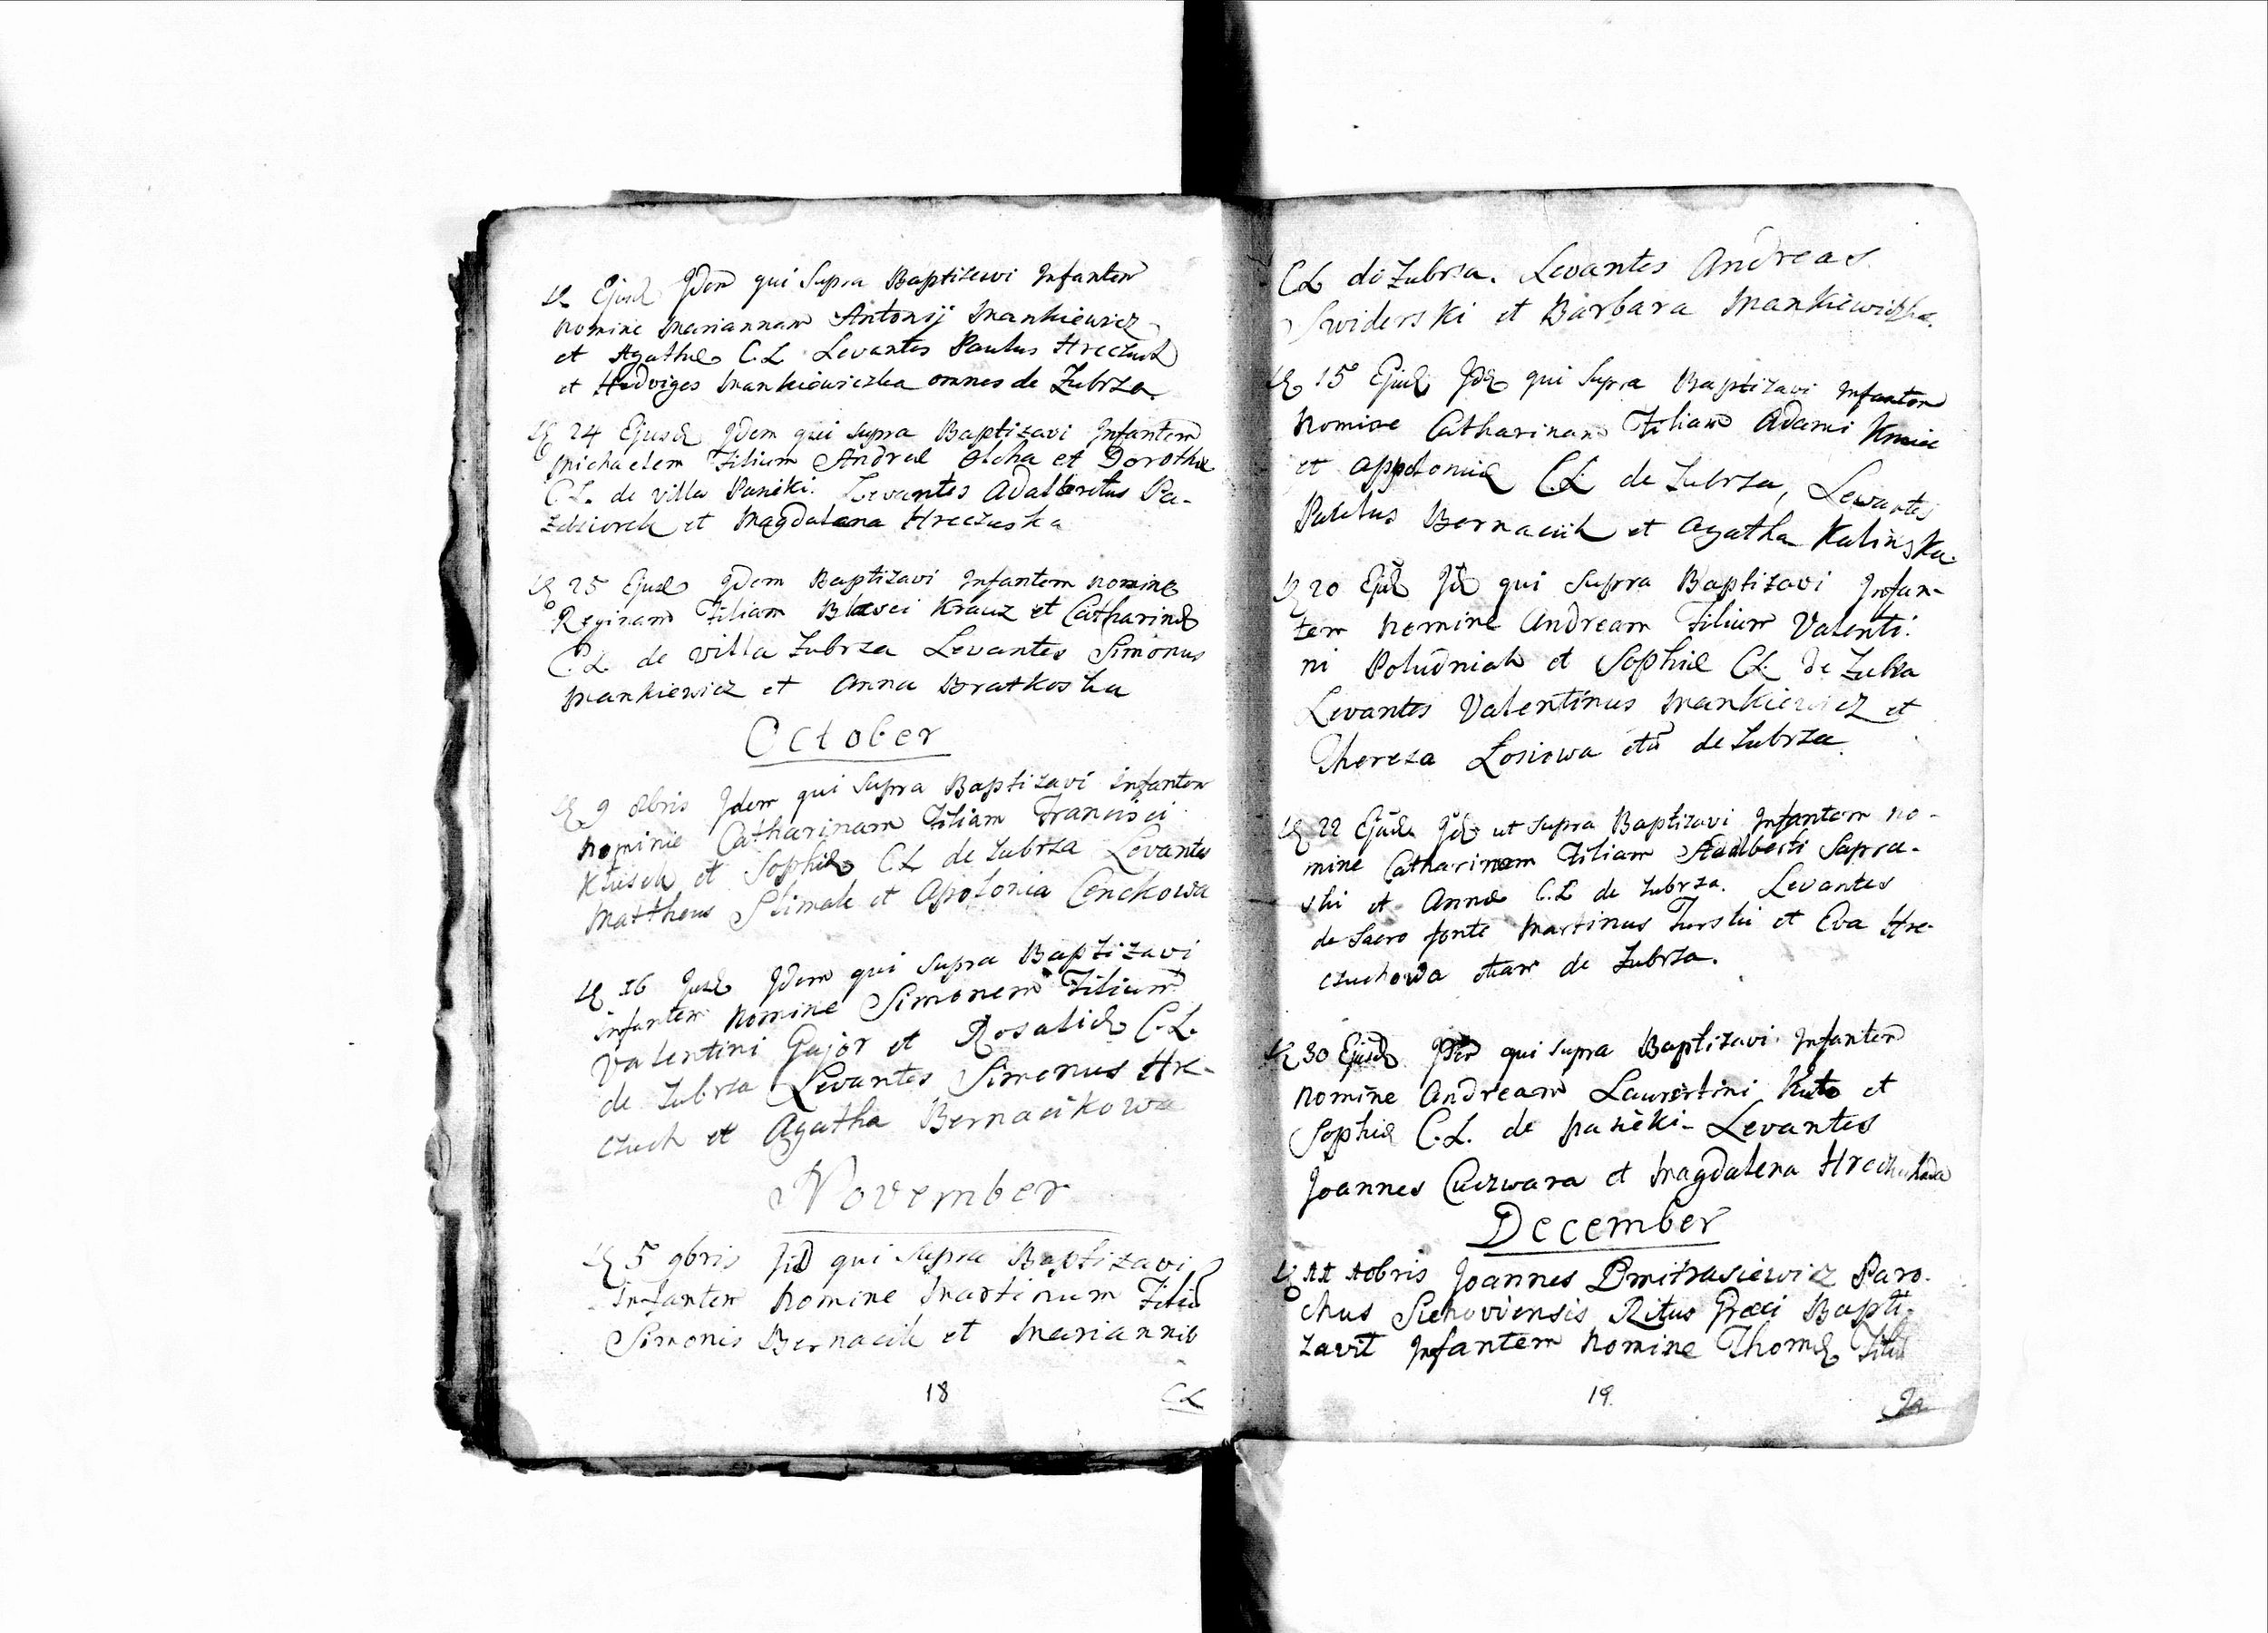 Ejusd Idem qui Supra Baptisavi Infantem
nomine Mariannam Antonij Mankiewicz
et Agathæ C.L. Levantes Paulus Hreczuch
et Hedviges Mankiewiczka omnes de Zubrza
24 Ejusd Idem qui supra Baptizavi Infantem
Michaelem Filium Andreæ Olcha et Dorothæ
C.L. de villa Pasieki. Levantes Adalbertus Pa-
et Magdalena Hreczuska
25 Ejusd Idem Baptizavi Infantem nomine
Reginam Filiam Blasei Krauz et Catharinæ
C.L. de villa Zubrza Levantes Simonus
Mankiewicz et Anna Bratkoska
October
9 8bris Idem qui supra Baptizavi infantem
nomine Catharinam Filiam Francisci
et Sophiæ C.L. de Zubrza Levantes
Mattheus Slimak et Apolonia Cenckowa
16 Idem qui supra Baptizavi
infantem nomine Simonem Filium
Valentini Gajor et Rosaliæ C.L.
de Zubrza Levantes Simonus Hre-
czuch et Agatha Bernacikowa
November
5 9bris qui supra Baptizavi
Infantem nomine Martinum Filiu
Simonis Bernacik et Mariannæ
18
CL
CL de Zubrza. Levantes Andreas
Swiderski et Barbara Mankiewiczka.
15 Ejusd Idem qui supra Baptizavi Infantem
nomine Catharinam Filiam Adami Kmiec
et Appoloniæ C.L. de Zubrza, Levantes
Paulus Bernacik et Agatha Kalinska
20 Ejusd Id qui supra Baptizavi Infan-
tem nomine Andream Filium Valenti-
ni Poludniak et Sophiæ CL. de Zubza
Levantes Valentinus Mankiewicz et
Thereza Łosiowa etiã de Zubrza
22 Ejusd Id ut supra Baptizavi Infantem no-
mine Catharinam Filiam Adalberti Sapra-
ski et Annæ C.L. de Zubrza. Levantes
de sacro fonte Martinus Turski et Eva Hre-
czuchowa etiam de Zubrza.
30 Ejusd Idem qui supra Baptizavi Infantem
nomine Andream Laurentini Kuto et
Sophiæ C.L. de pasieki- Levantes
Joannes Cuczwara et Magdalena
December
11 10bris Joannes Dmitrasiewicz Paro-
chus Sichoviensis Ritus Græci Bapti-
zavit Infantem nomine Thomæ Filiu
19.